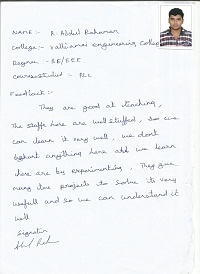 NAME :- A. Abdul Rahaman
College:- Valliammai engineering College
Degree :- BE/EEE
Course studied :- PLC
Feedback :-
They are good at teaching,
The staffs here are well stuffed, so we
can learn it very well. we dont
byheart anything here add we learn
here are by experimenting. They give
many live projects to solve its very
usefull and so we can understand it
well
Signature